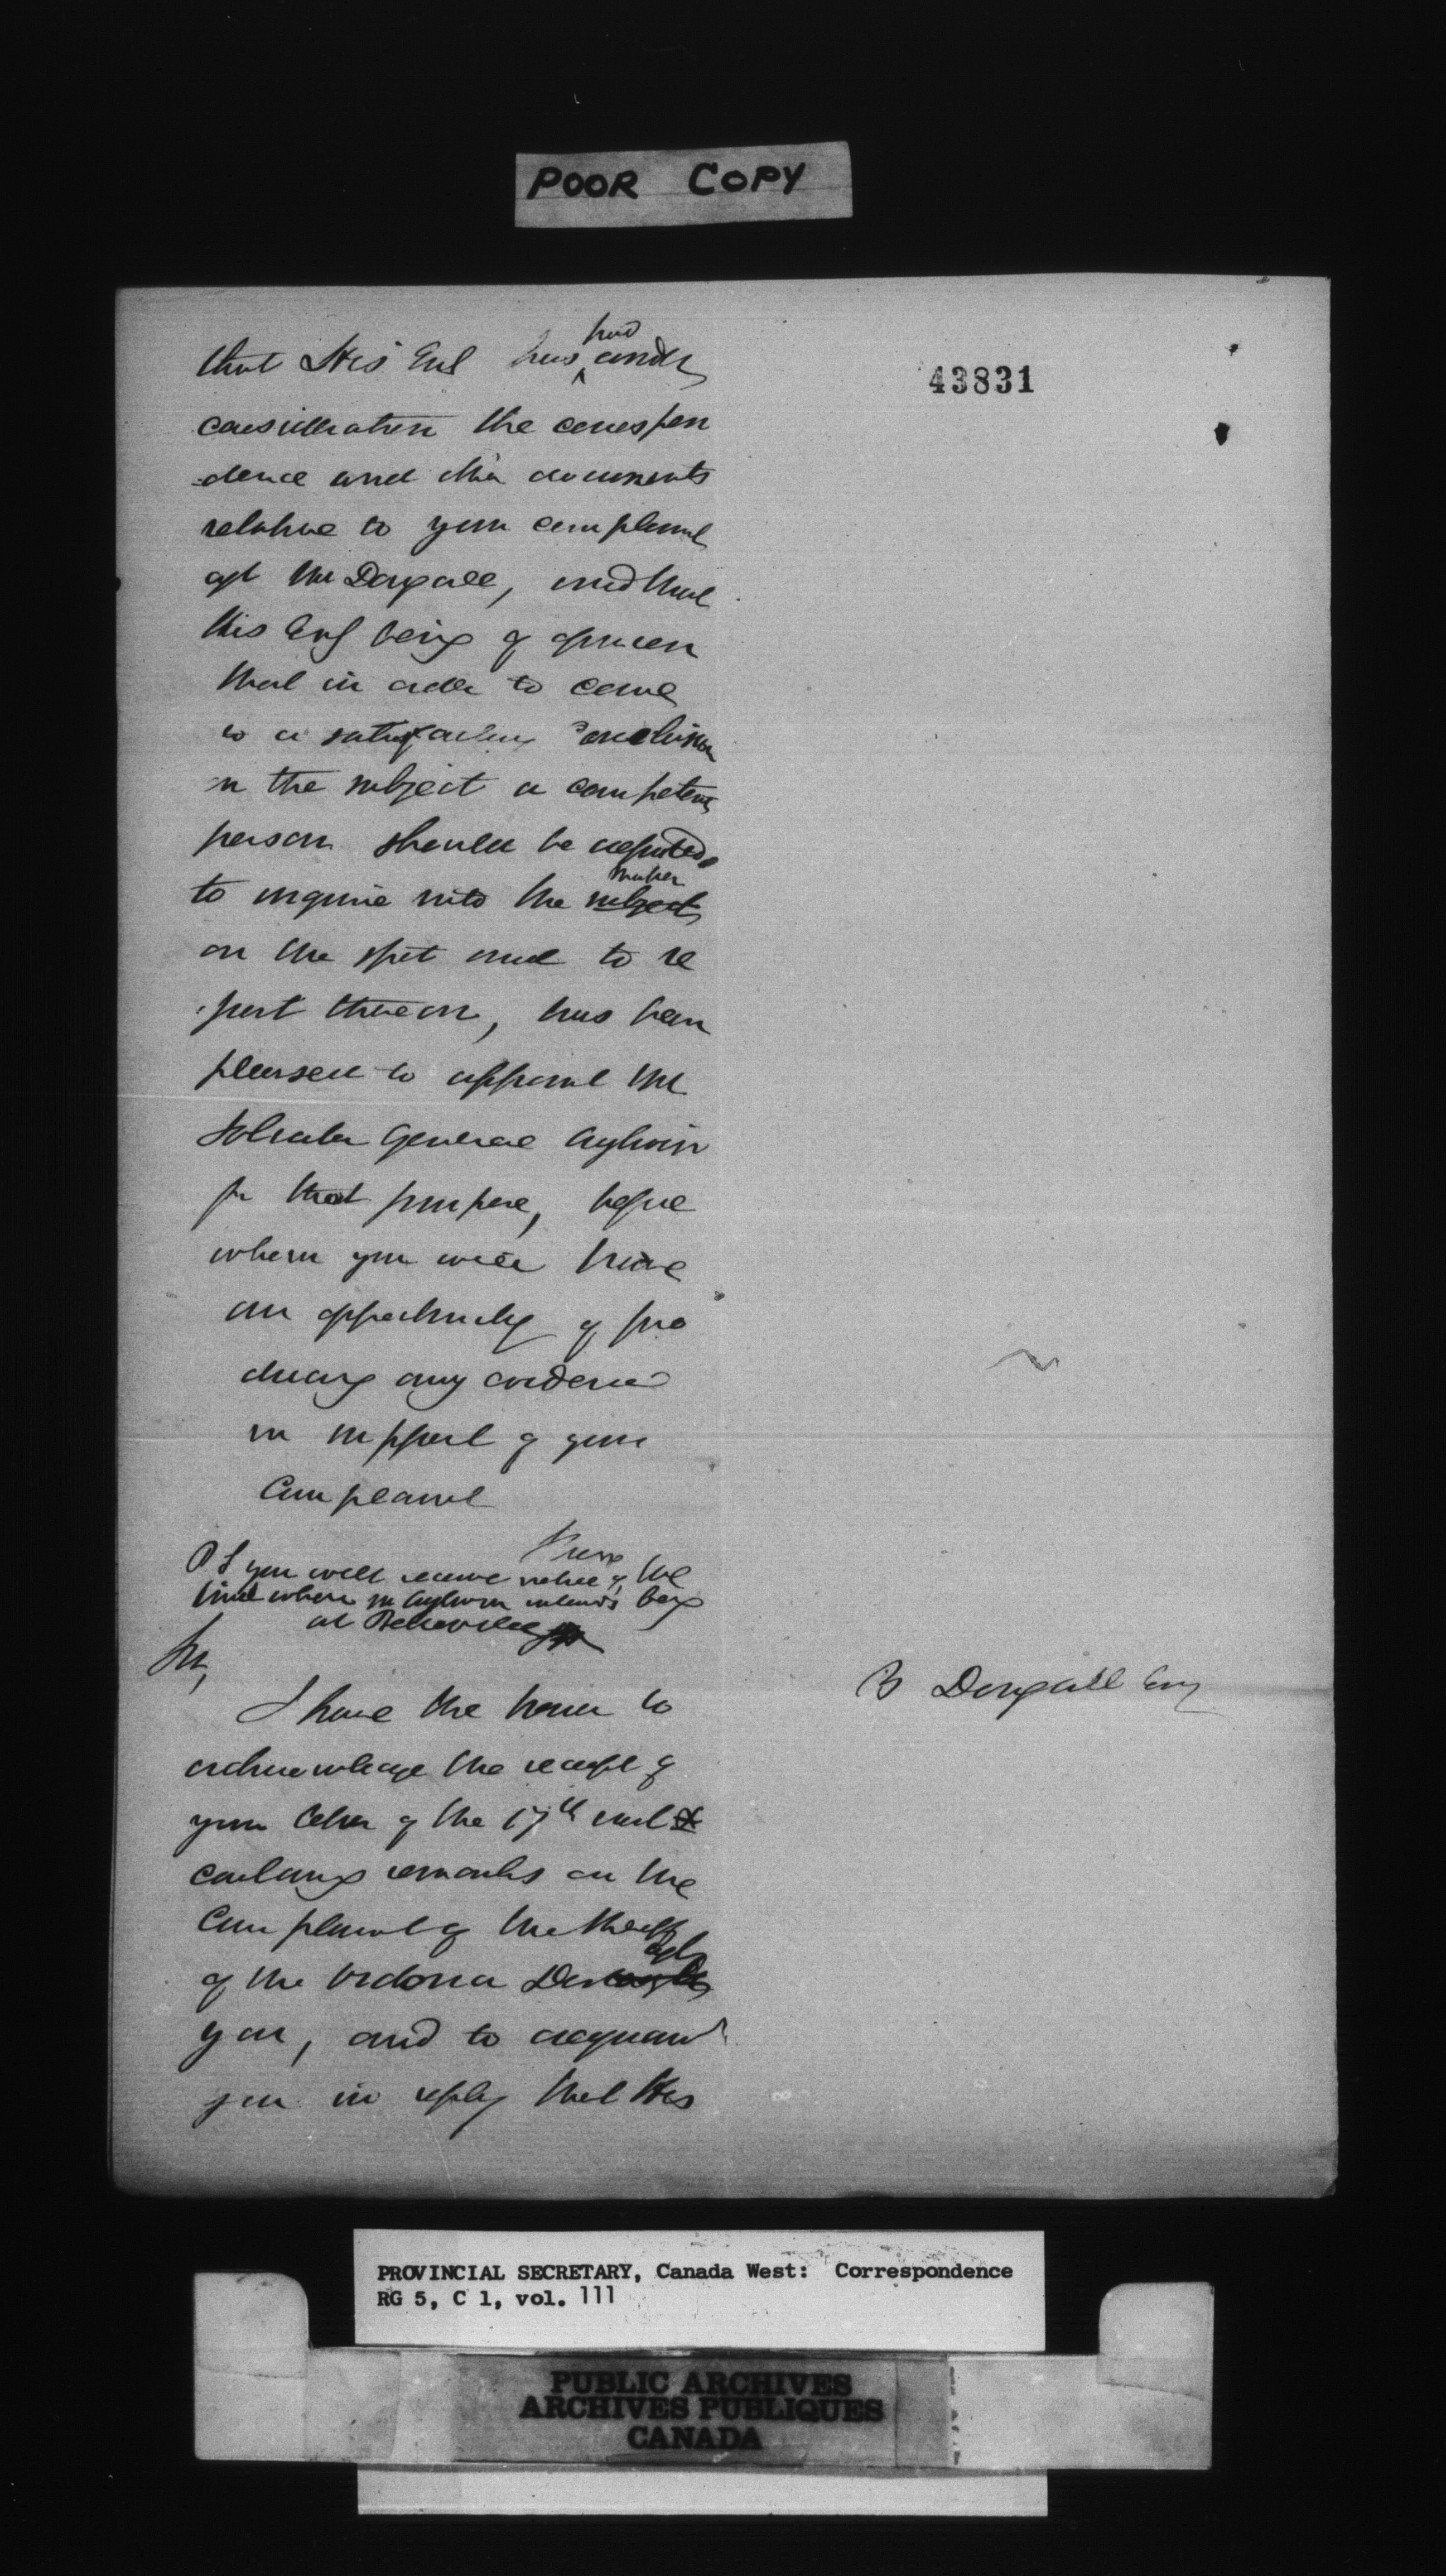 POOR COPY
43831
that His Exc has had under
consideration the correspon
-dence and other documents
relative to your complaint
agt Mr Dougall, and that
His Exc being of opinion
that in order to come
to a satisfactory conclusion
on the subject a competent
person should be deputed
to inquire into the subject matter
on the spot and to re
-port thereon, has been
pleased to appoint Mr
Solicitor General Aylwin
for that purpose, before
whom you will have
an opportunity of pro
ducing any evidence
in support of your
Complaint
P S you will receive notice of the
time when Mr Aylwin intends being
at Belleville
Sir,
B Dougall Esq
I have the honor to
acknowledge the receipt of
your letter of the 17th inst
containg remarks on the
Complaint of the Sheriff
of the Victoria Dist agt
you, and to acquaint
you in reply that His
PROVINCIAL SECRETARY, Canada West: Correspondence
RG 5, C 1, vol. 111
PUBLIC ARCHIVES
ARCHIVES PUBLIQUES
CANADA